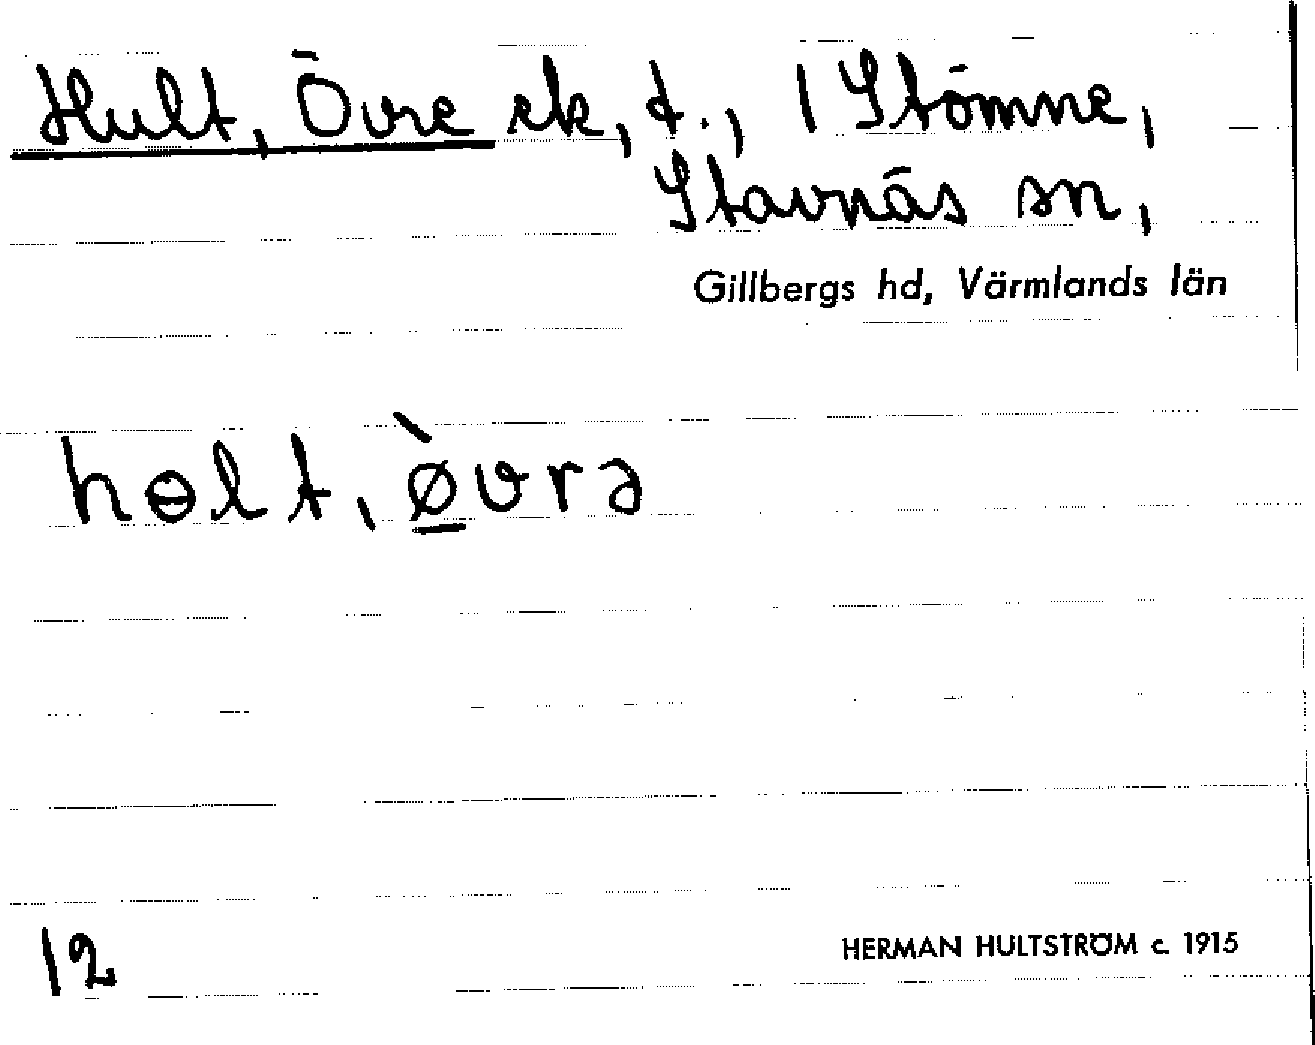 Hult, Övre ek, t., 1 Stömne,
Stavnäs sn,
Gillbergs hd, Värmlands län
hɵlt, ø̀vrə
12
HERMAN HULTSTRÖM c. 1915